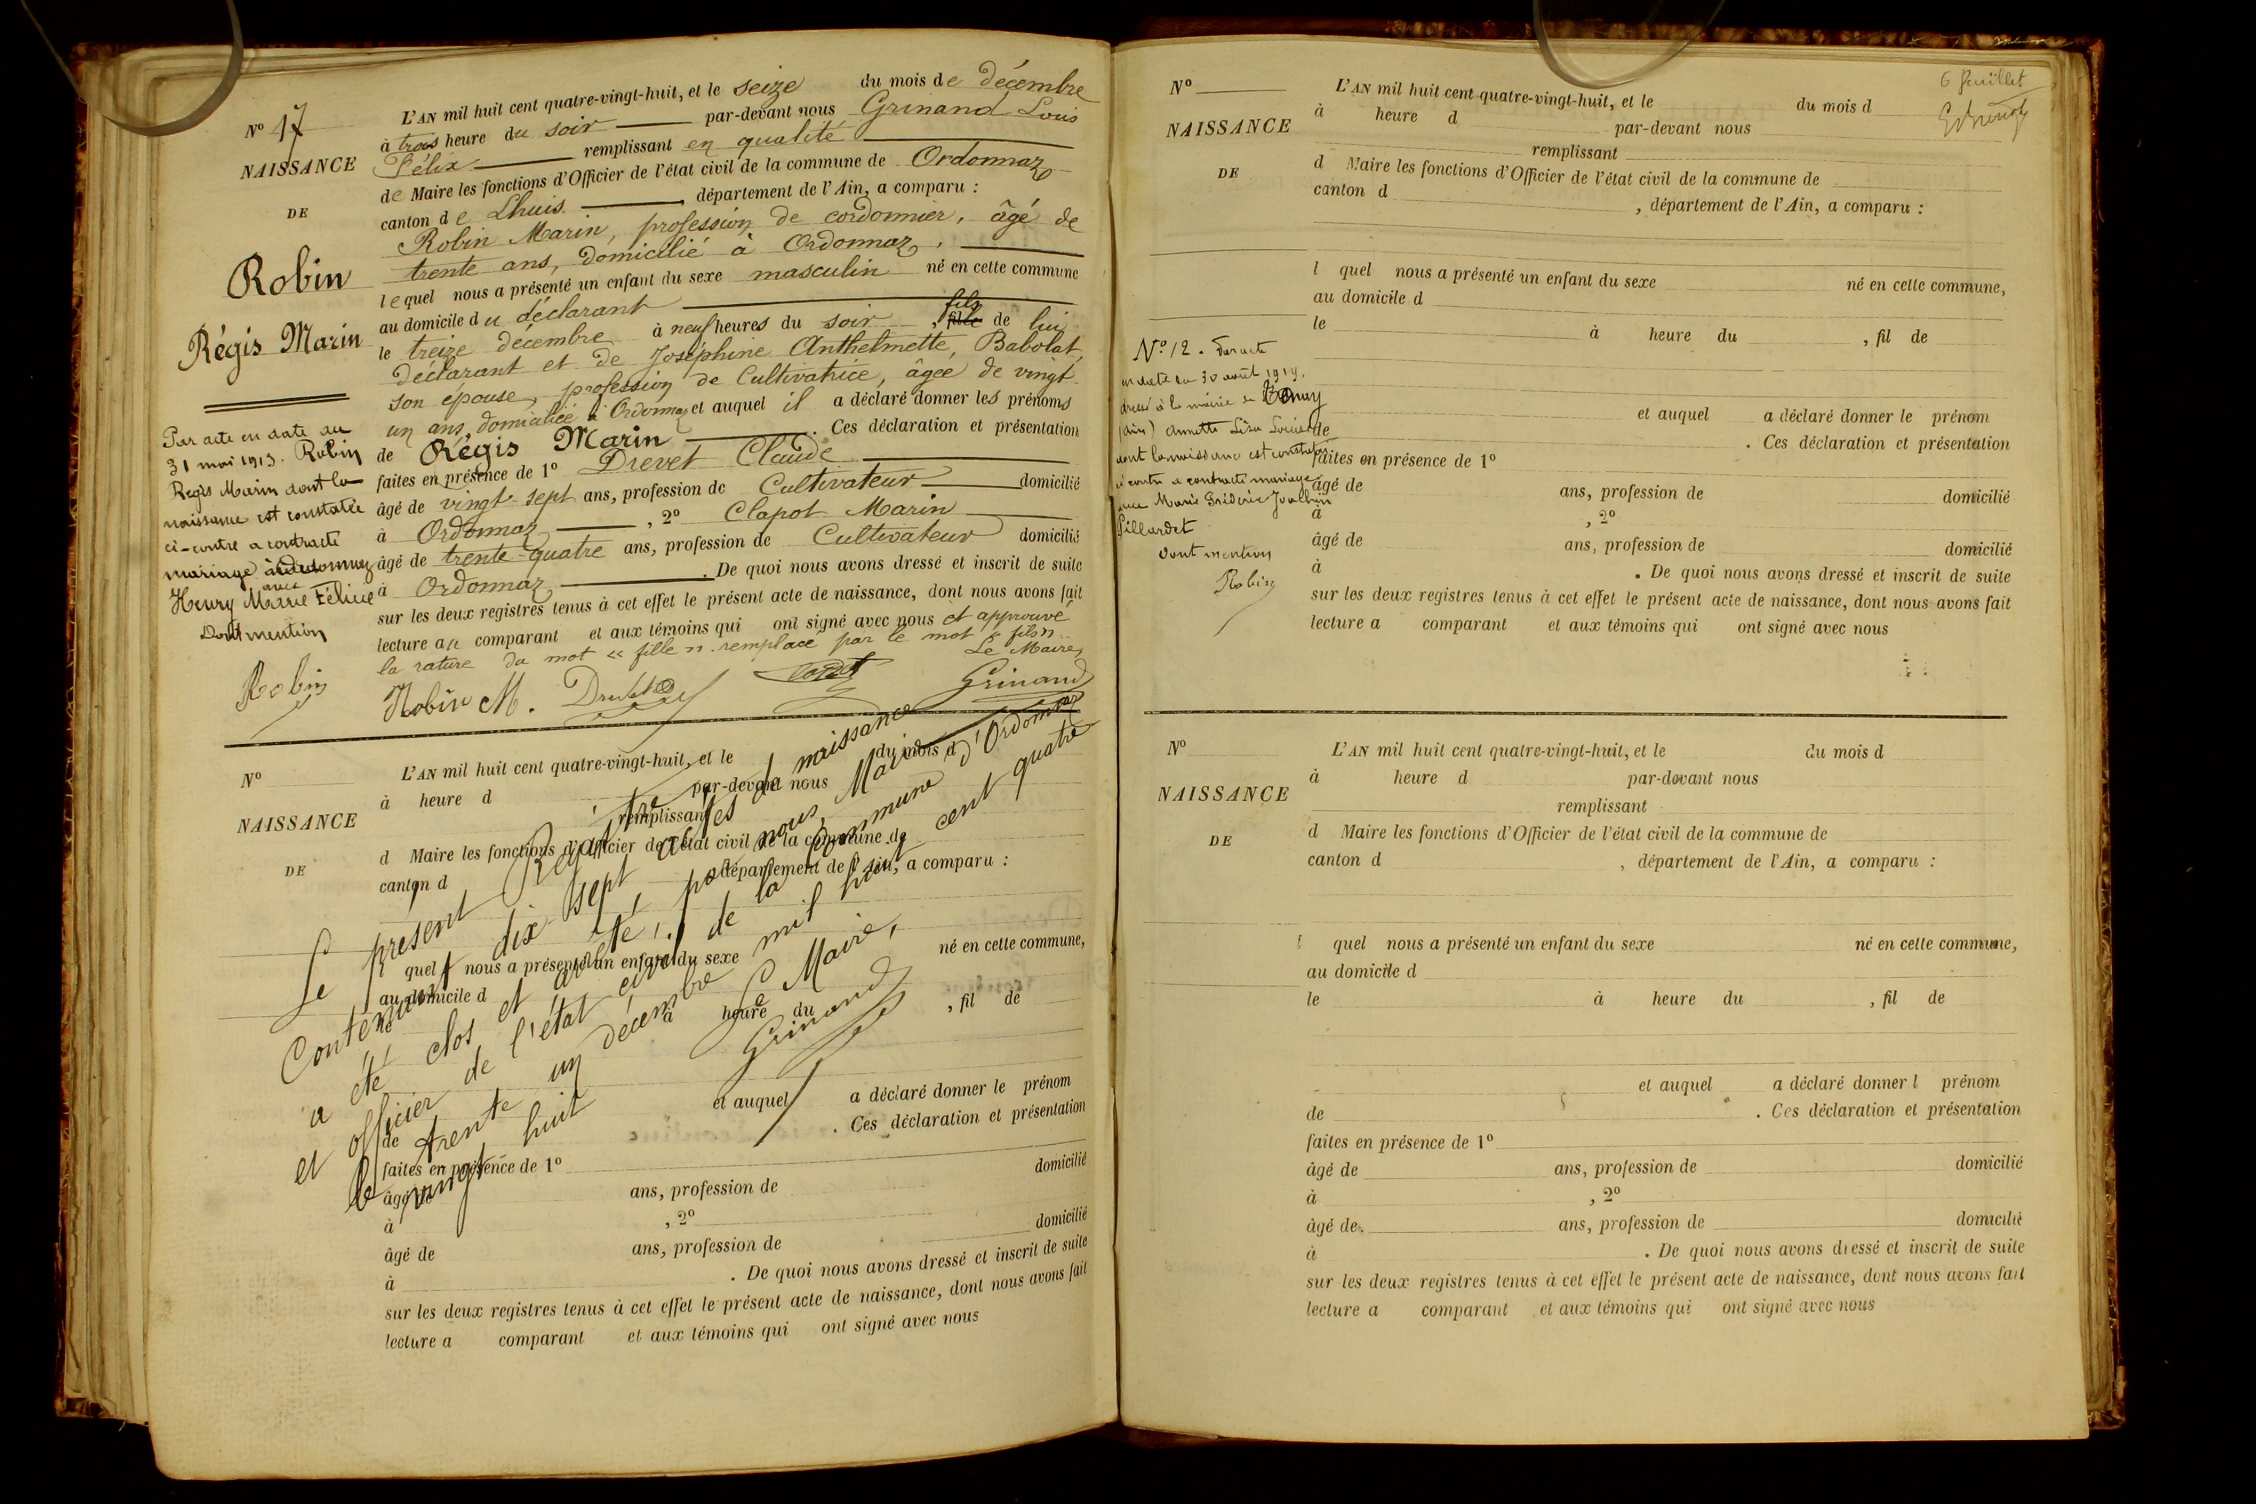 Nº 17
NAISSANCE
DE
Robin
Régis Marin
Par acte en date du
31 mai 1913. Robin
Régis Marin dont la
naissance est constatée
ci-contre a contracté
mariage à Ordonnaz
avec
Henry Marie Félicie
Dont mention
Robin
L'AN mil huit cent quatre-vingt-huit, et le seize du mois de décembre
à trois heure du soir par-devant nous Grinand Louis
Félix remplissant en qualité
de Maire les fonctions d'Officier de l'état civil de la commune de Ordonnaz
canton de Lhuis, département de l'Ain, a comparu :
Robin Marin, profession de cordonnier, âgé de
trente ans, domicilié à Ordonnaz,
lequel nous a présenté un enfant du sexe masculin né en cette commune
au domicile du déclarant
fils
le treize décembre à neuf heures du soir, fille de lui
déclarant et de Joséphine Anthelmette, Babolat,
son épouse, profession de Cultivatrice, âgée de vingt
un ans, domiciliée à Ordonnaz et auquel il a déclaré donner les prénoms
de Régis Marin. Ces déclaration et présentation
faites en présence de 1º Drevet Claude
âgé de vingt-sept ans, profession de Cultivateur domicilié
à Ordonnaz, 2º Clapot Marin
âgé de trente-quatre ans, profession de Cultivateur domicilié
à Ordonnaz. De quoi nous avons dressé et inscrit de suite
sur les deux registres tenus à cet effet le présent acte de naissance, dont nous avons fait
lecture au comparant et aux témoins qui ont signé avec nous et approuvé
la rature du mot « fille » remplacé par le mot « fils ».
Le Maire,
Robin M. Grinand
Nº
NAISSANCE
DE
L'AN mil huit cent quatre-vingt-huit, et le du mois d
à heure d par-devant nous
remplissant
d Maire les fonctions d'Officier de l'état civil de la commune de
canton d département de l'Ain, a comparu :
quel nous a présenté un enfant du sexe né en cette commune,
au domicile d
le à heure du , fil de
et auquel a déclaré donner le prénom
de . Ces déclaration et présentation
faites en présence de 1º
âgé de ans, profession de domicilié
à , 2º
âgé de ans, profession de domicilié
à . De quoi nous avons dressé et inscrit de suite
sur les deux registres tenus à cet effet le présent acte de naissance, dont nous avons fait
lecture a comparant et aux témoins qui ont signé avec nous
Le présent Registre
Contenant dix sept actes de naissance
a été clos et arrêté par nous, Maire
et officier de l'état civil de la Commune d'Ordonnaz
le trente un décembre mil huit cent quatre
vingt huit
Le Maire,
Grinand
6 Juillet
Nº
NAISSANCE
DE
L'AN mil huit cent quatre-vingt-huit, et le du mois d
à heure d par-devant nous
remplissant
d Maire les fonctions d'Officier de l'état civil de la commune de
canton d , département de l'Ain, a comparu :
l quel nous a présenté un enfant du sexe né en cette commune,
au domicile d
le à heure du , fil de
et auquel a déclaré donner le prénom
de . Ces déclaration et présentation
faites en présence de 1º
âgé de ans, profession de domicilié
à , 2º
âgé de ans, profession de domicilié
à . De quoi nous avons dressé et inscrit de suite
sur les deux registres tenus à cet effet le présent acte de naissance, dont nous avons fait
lecture a comparant et aux témoins qui ont signé avec nous
Nº 12. Par acte
en date du 30 août 1919.
dressé à la mairie de Tenay
(Ain) Annette Lisa Louise
dont la naissance est constatée
ci contre a contracté mariage
avec Marie Frédéric Joachim
Pillardet
Dont mention
Robin
Nº
NAISSANCE
DE
L'AN mil huit cent quatre-vingt-huit, et le du mois d
à heure d par-devant nous
remplissant
d Maire les fonctions d'Officier de l'état civil de la commune de
canton d , département de l'Ain, a comparu :
l quel nous a présenté un enfant du sexe né en cette commune,
au domicile d
le à heure du , fil de
et auquel a déclaré donner l prénom
de . Ces déclaration et présentation
faites en présence de 1º
âgé de ans, profession de domicilié
à , 2º
âgé de ans, profession de domicilié
à . De quoi nous avons dressé et inscrit de suite
sur les deux registres tenus à cet effet le présent acte de naissance, dont nous avons fait
lecture a comparant et aux témoins qui ont signé avec nous